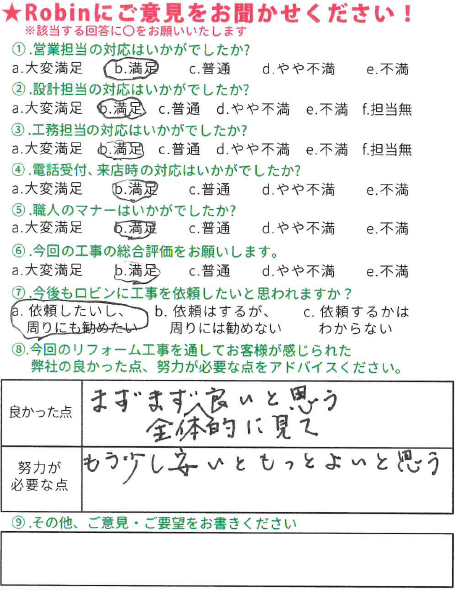 ★Robinにご意見をお聞かせください！
※該当する回答に〇をお願いいたします
①.営業担当の対応はいかがでしたか?
a.大変満足 b.満足 c.普通 d.やや不満 e.不満
②.設計担当の対応はいかがでしたか?
a.大変満足 b.満足 c.普通 d.やや不満 e.不満 f.担当無
③.工務担当の対応はいかがでしたか?
a.大変満足 b.満足 c.普通 d.やや不満 e.不満 f.担当無
④.電話受付、来店時の対応はいかがでしたか?
a.大変満足 b.満足 c.普通 d.やや不満 e.不満
⑤.職人のマナーはいかがでしたか?
a.大変満足 b.満足 c.普通 d.やや不満 e.不満
⑥.今回の工事の総合評価をお願いします。
a.大変満足 b.満足 c.普通 d.やや不満 e.不満
⑦.今後もロビンに工事を依頼したいと思われますか？
a. 依頼したいし、 b. 依頼はするが、 c. 依頼するかは
周りにも勧めたい 周りには勧めない わからない
⑧.今回のリフォーム工事を通してお客様が感じられた
弊社の良かった点、努力が必要な点をアドバイスください。
良かった点
まずまず良いと思う
全体的に見て
努力が
必要な点
もう少し安いともっとよいと思う
⑨.その他、ご意見・ご要望をお書きください